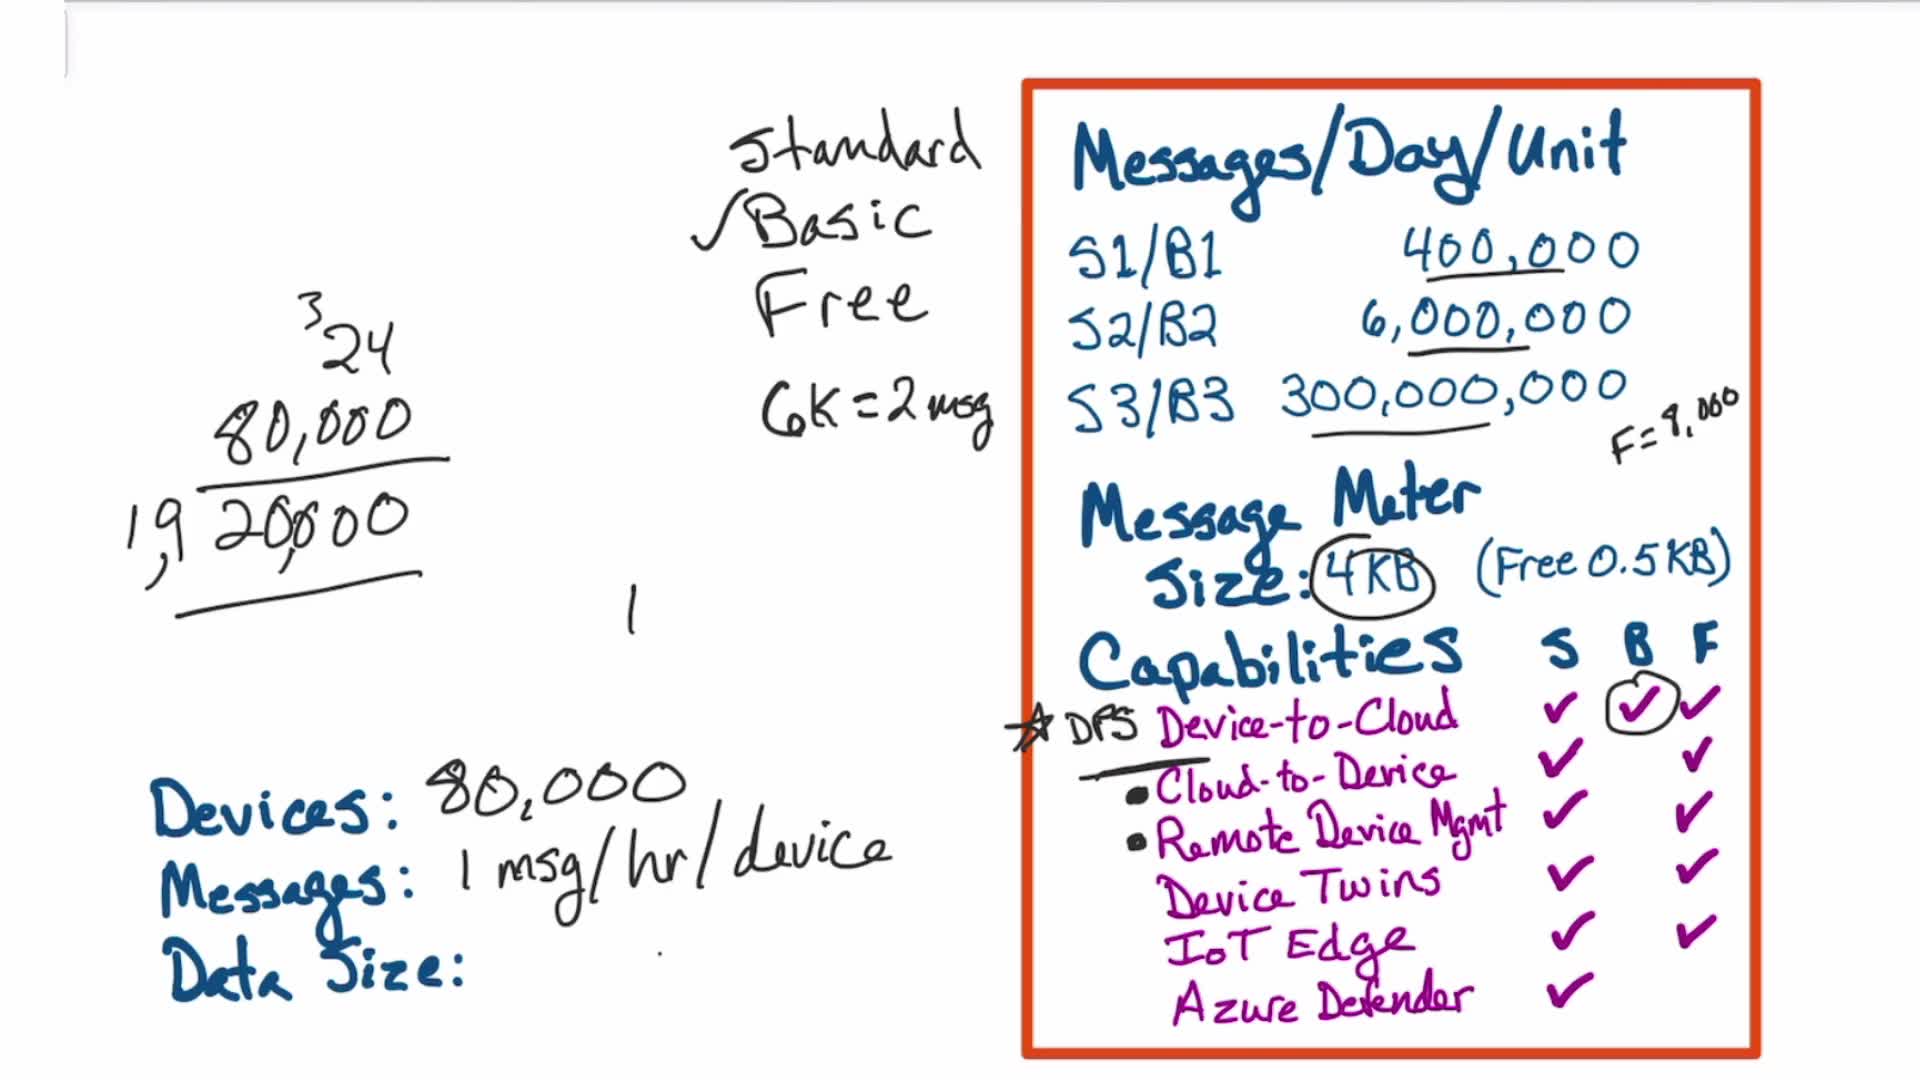 Standard
✓Basic
Free
6K=2 msg
3
24
80,000
1,920,000
1
Devices: 80,000
Messages: 1 msg/hr/device
Data Size:
Messages/Day/Unit
S1/B1 400,000
S2/B2 6,000,000
S3/B3 300,000,000
F=8,000
Message Meter
Size: 4KB (Free 0.5KB)
Capabilities S B F
DPS Device-to-Cloud ✓ ✓ ✓
• Cloud-to-Device ✓ ✓
• Remote Device Mgmt ✓ ✓
Device Twins ✓ ✓
IoT Edge ✓ ✓
Azure Defender ✓